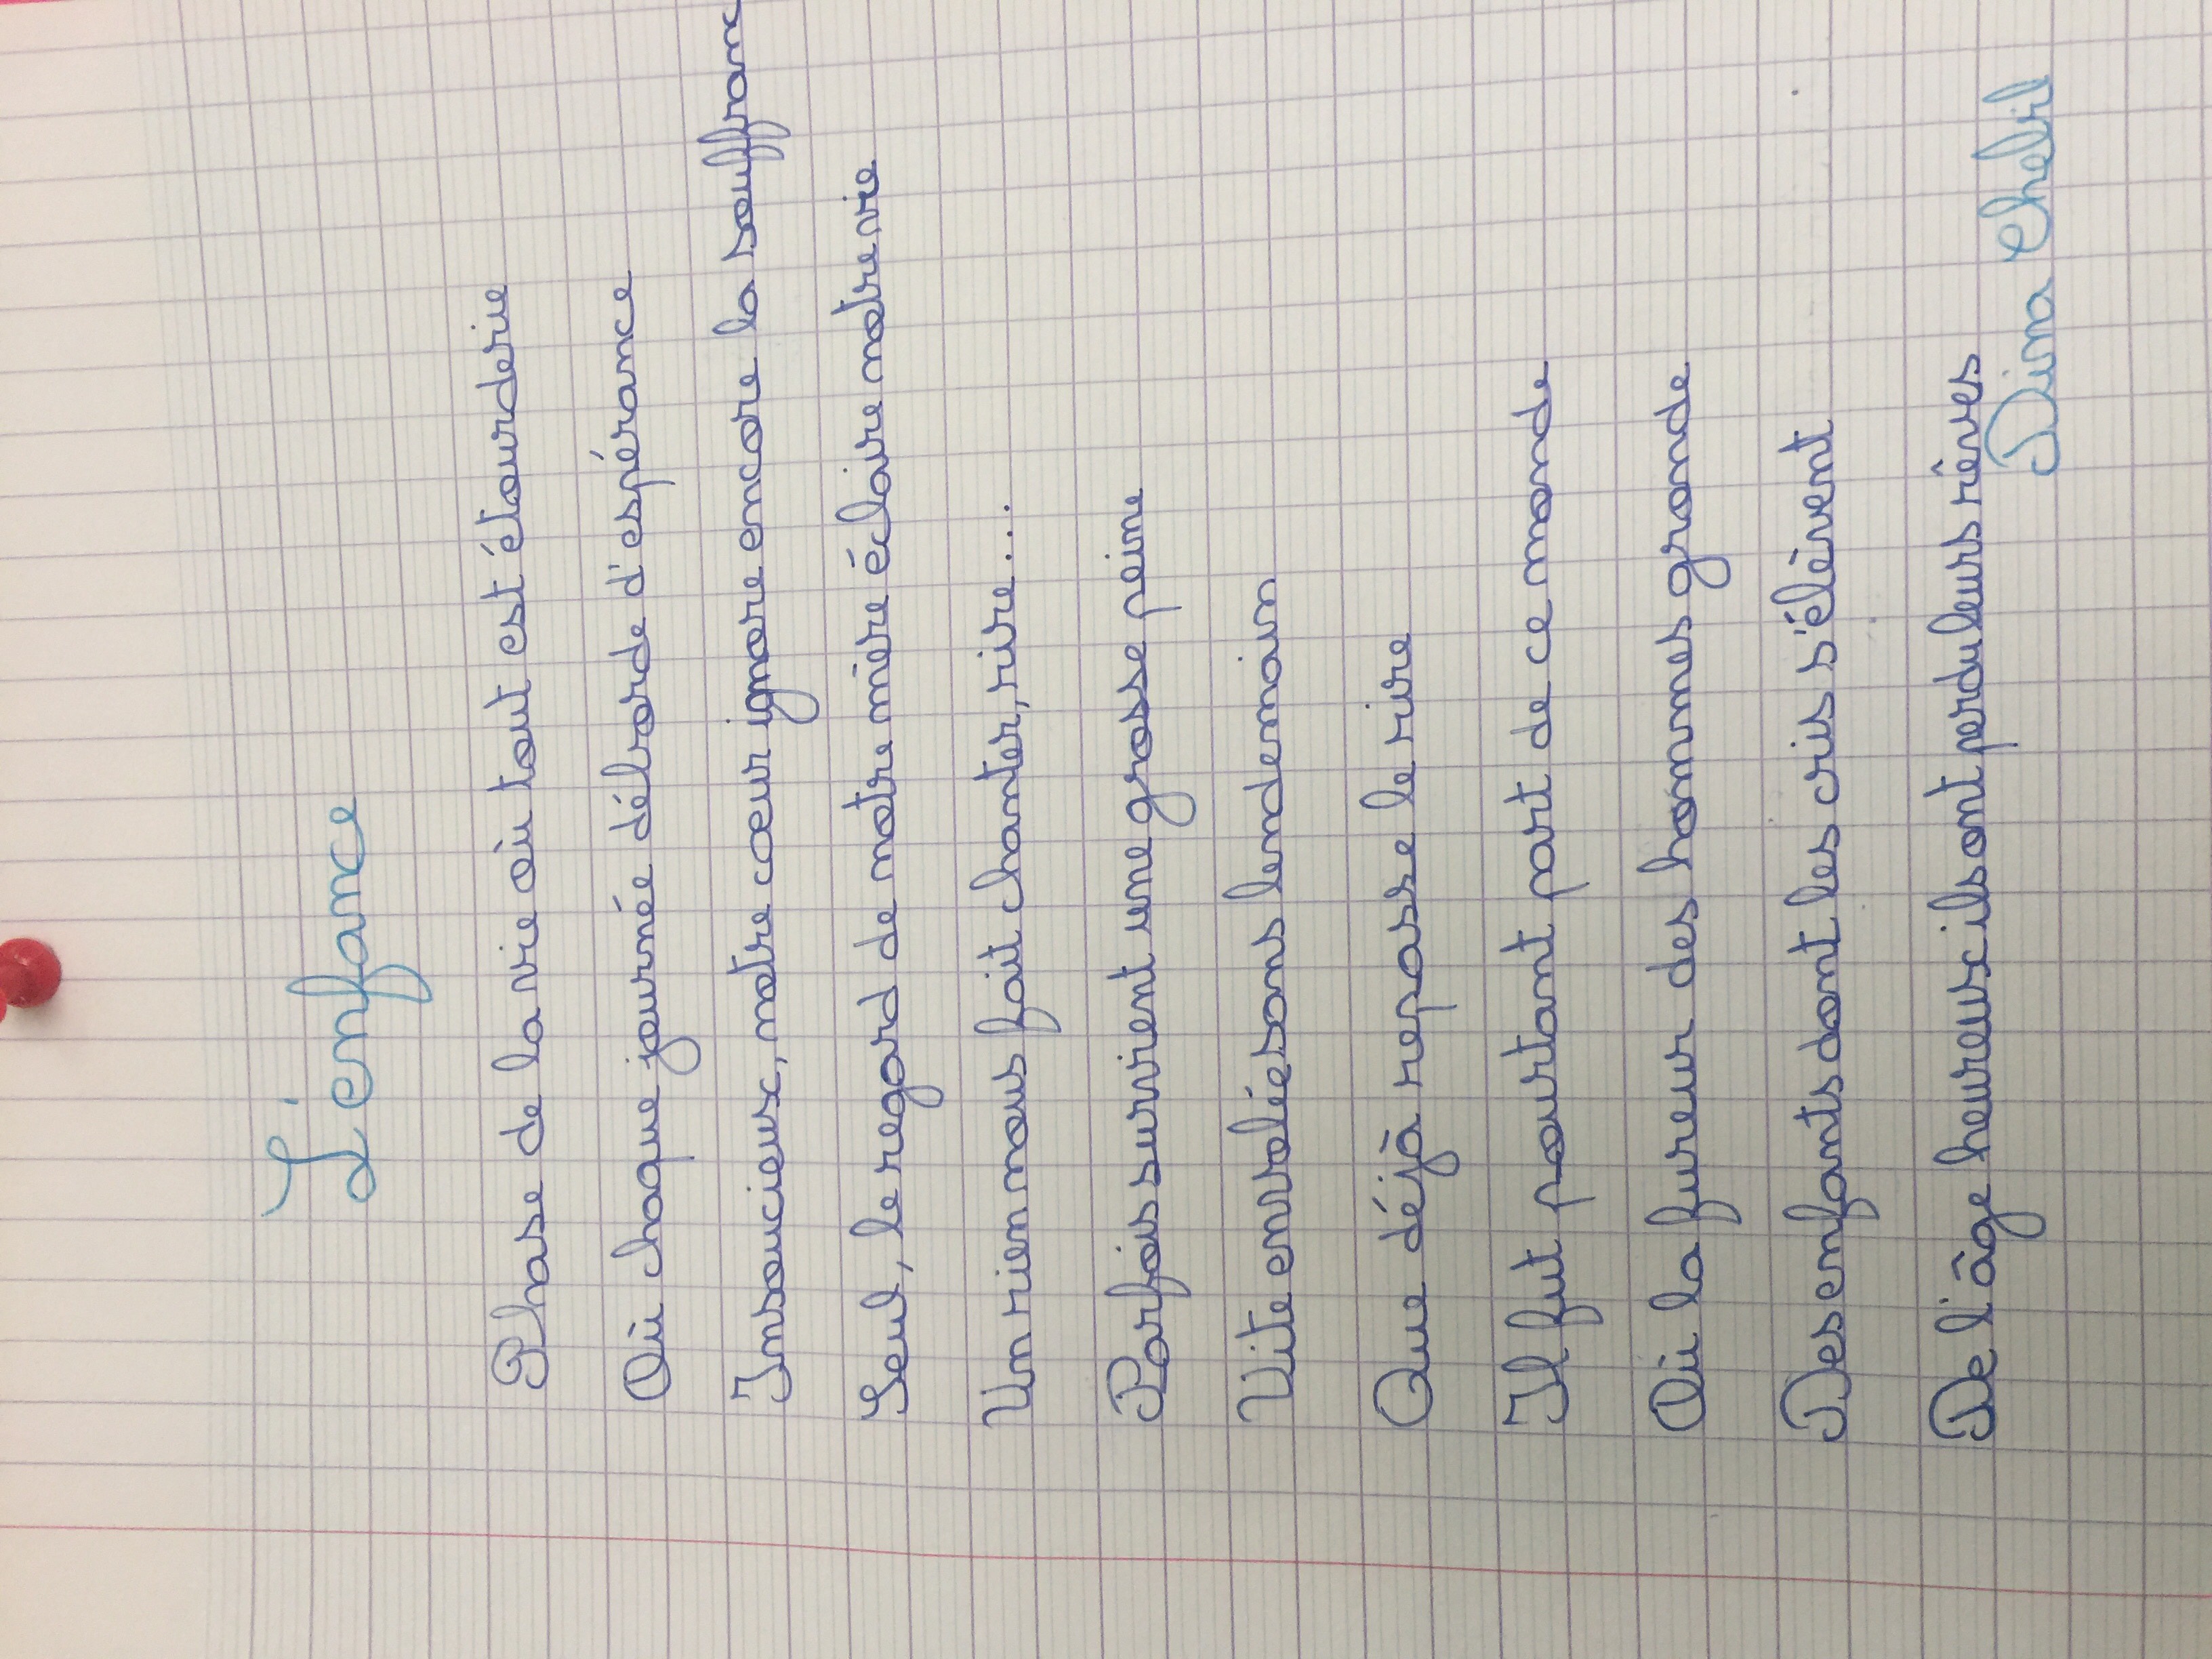 L'enfance
Phase de la vie où tout est étourderie
Où chaque journée déborde d'espérance
Insoucieux, notre cœur ignore encore la souffranc
Seul, le regard de notre mère éclaire notre vie
Un rien nous fait chanter, rire...
Parfois survient une grosse peine
Vite envolée sans lendemain
Que déjà repasse le rire
Il fut pourtant part de ce monde
Où la fureur des hommes gronde
Des enfants dont les cris s'élèvent
De l'âge heureux ils ont perdu leurs rêves
Dina Chebil